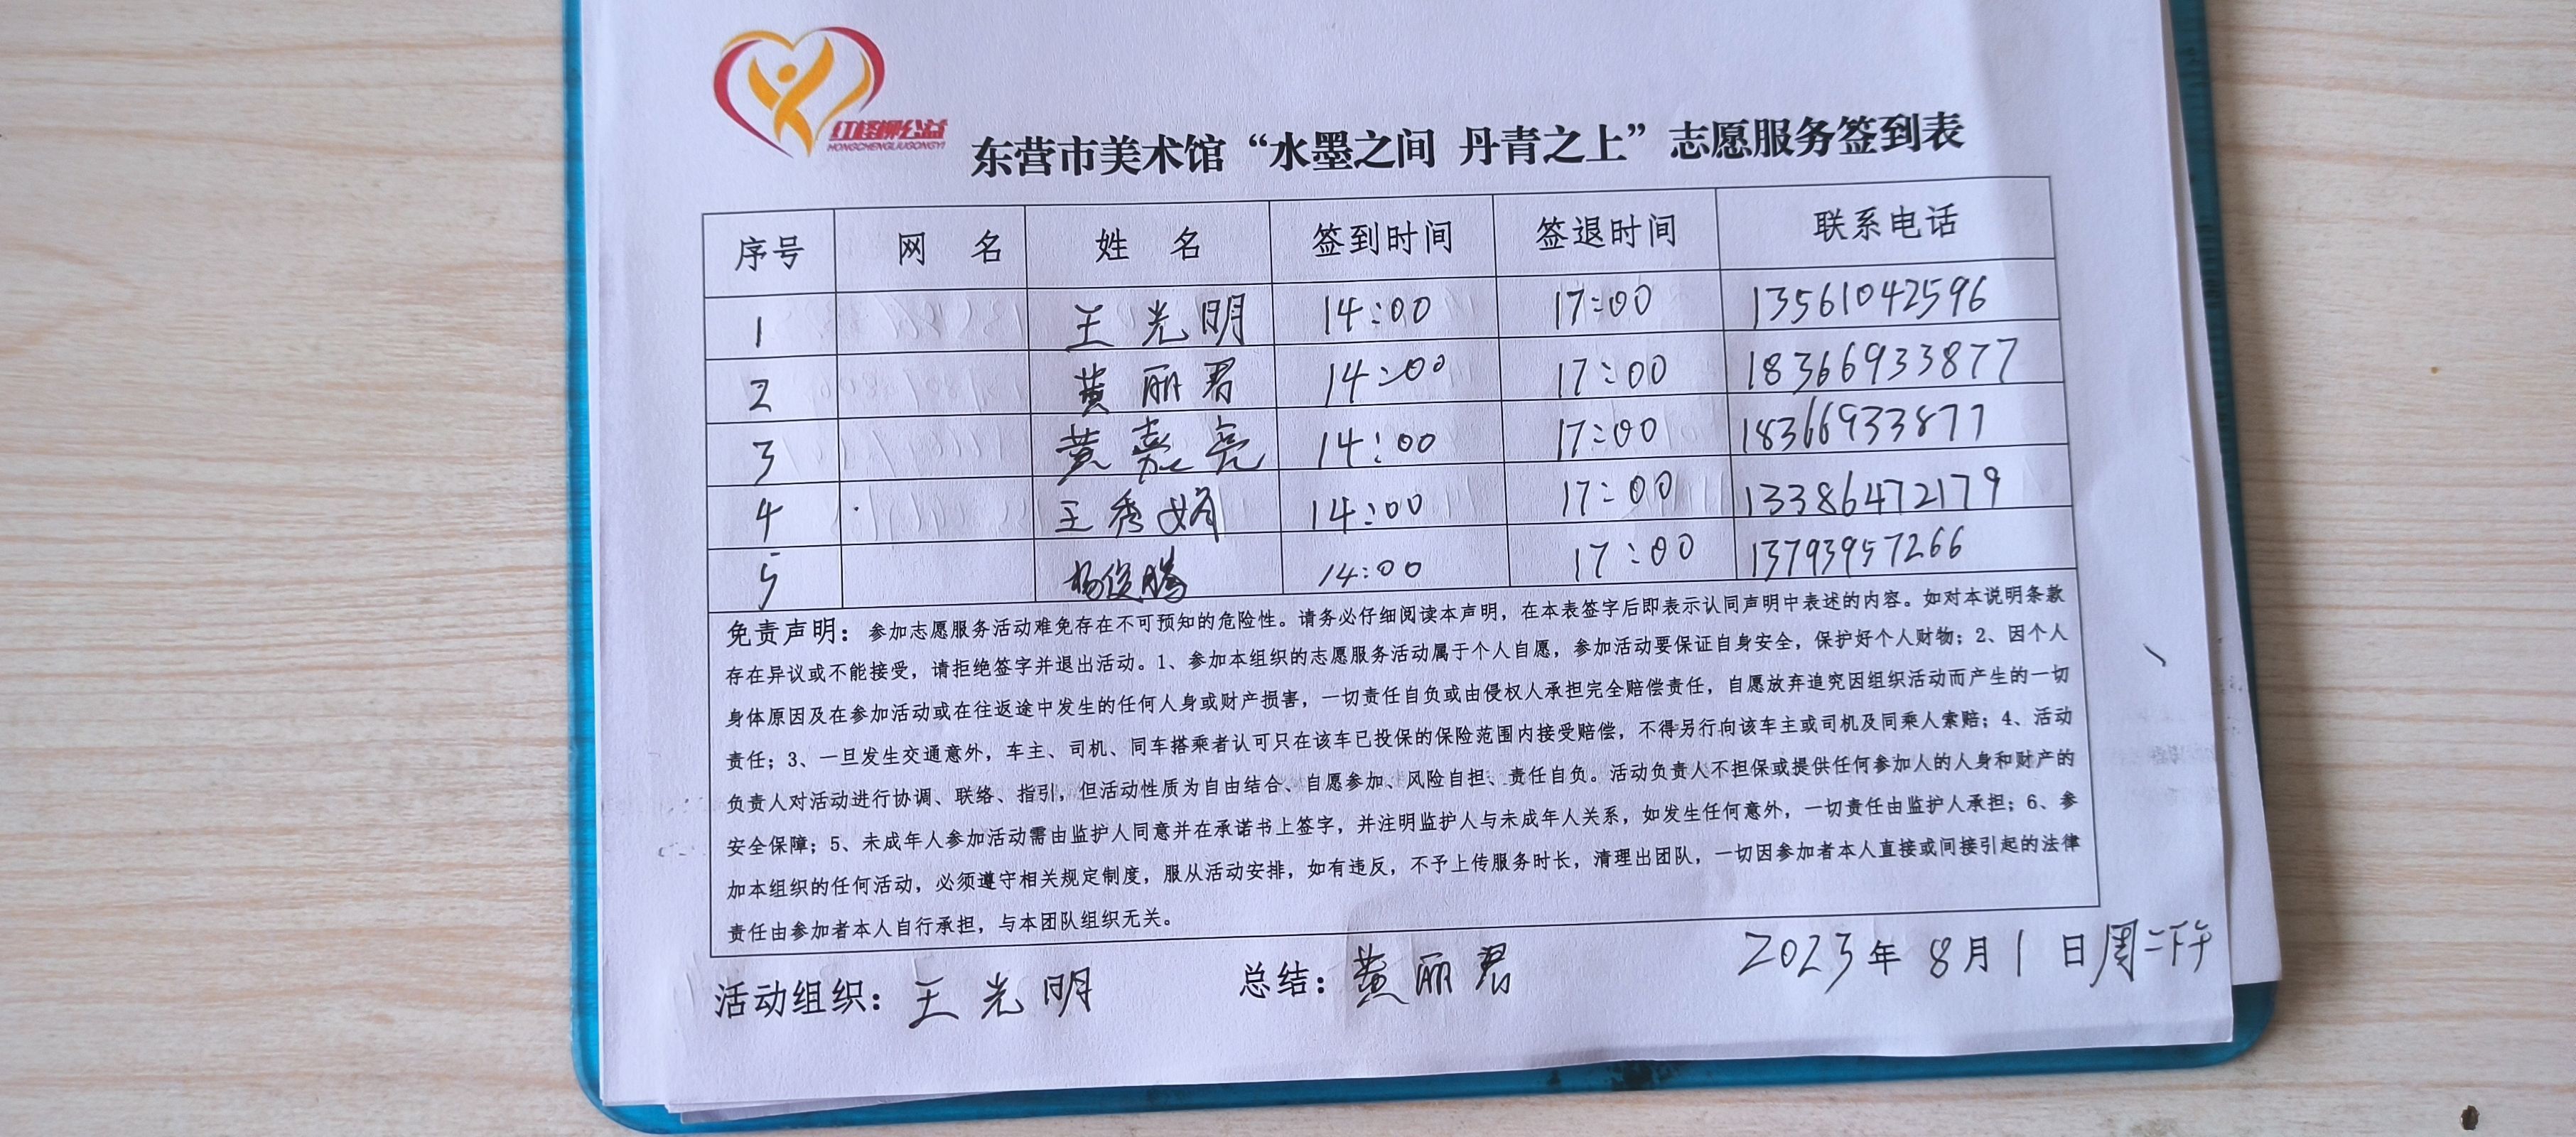 红柽柳公益
HONGCHENGLIUGONGYI
东营市美术馆“水墨之间 丹青之上”志愿服务签到表
序号 网 名 姓 名 签到时间 签退时间 联系电话
1 王光明 14:00 17:00 13561042596
2 黄丽君 14:00 17:00 18366933877
3 黄嘉亮 14:00 17:00 18366933877
4 王秀娟 14:00 17:00 13386472179
5 杨俊腾 14:00 17:00 13793957266
免责声明：参加志愿服务活动难免存在不可预知的危险性。请务必仔细阅读本声明，在本表签字后即表示认同声明中表述的内容。如对本说明条款
存在异议或不能接受，请拒绝签字并退出活动。1、参加本组织的志愿服务活动属于个人自愿，参加活动要保证自身安全，保护好个人财物；2、因个人
身体原因及在参加活动或在往返途中发生的任何人身或财产损害，一切责任自负或由侵权人承担完全赔偿责任，自愿放弃追究因组织活动而产生的一切
责任；3、一旦发生交通意外，车主、司机、同车搭乘者认可只在该车已投保的保险范围内接受赔偿，不得另行向该车主或司机及同乘人索赔；4、活动
负责人对活动进行协调、联络、指引，但活动性质为自由结合、自愿参加、风险自担、责任自负。活动负责人不担保或提供任何参加人的人身和财产的
安全保障；5、未成年人参加活动需由监护人同意并在承诺书上签字，并注明监护人与未成年人关系，如发生任何意外，一切责任由监护人承担；6、参
加本组织的任何活动，必须遵守相关规定制度，服从活动安排，如有违反，不予上传服务时长，清理出团队，一切因参加者本人直接或间接引起的法律
责任由参加者本人自行承担，与本团队组织无关。
活动组织：王光明 总结：黄丽君 2023年8月1日周二下午